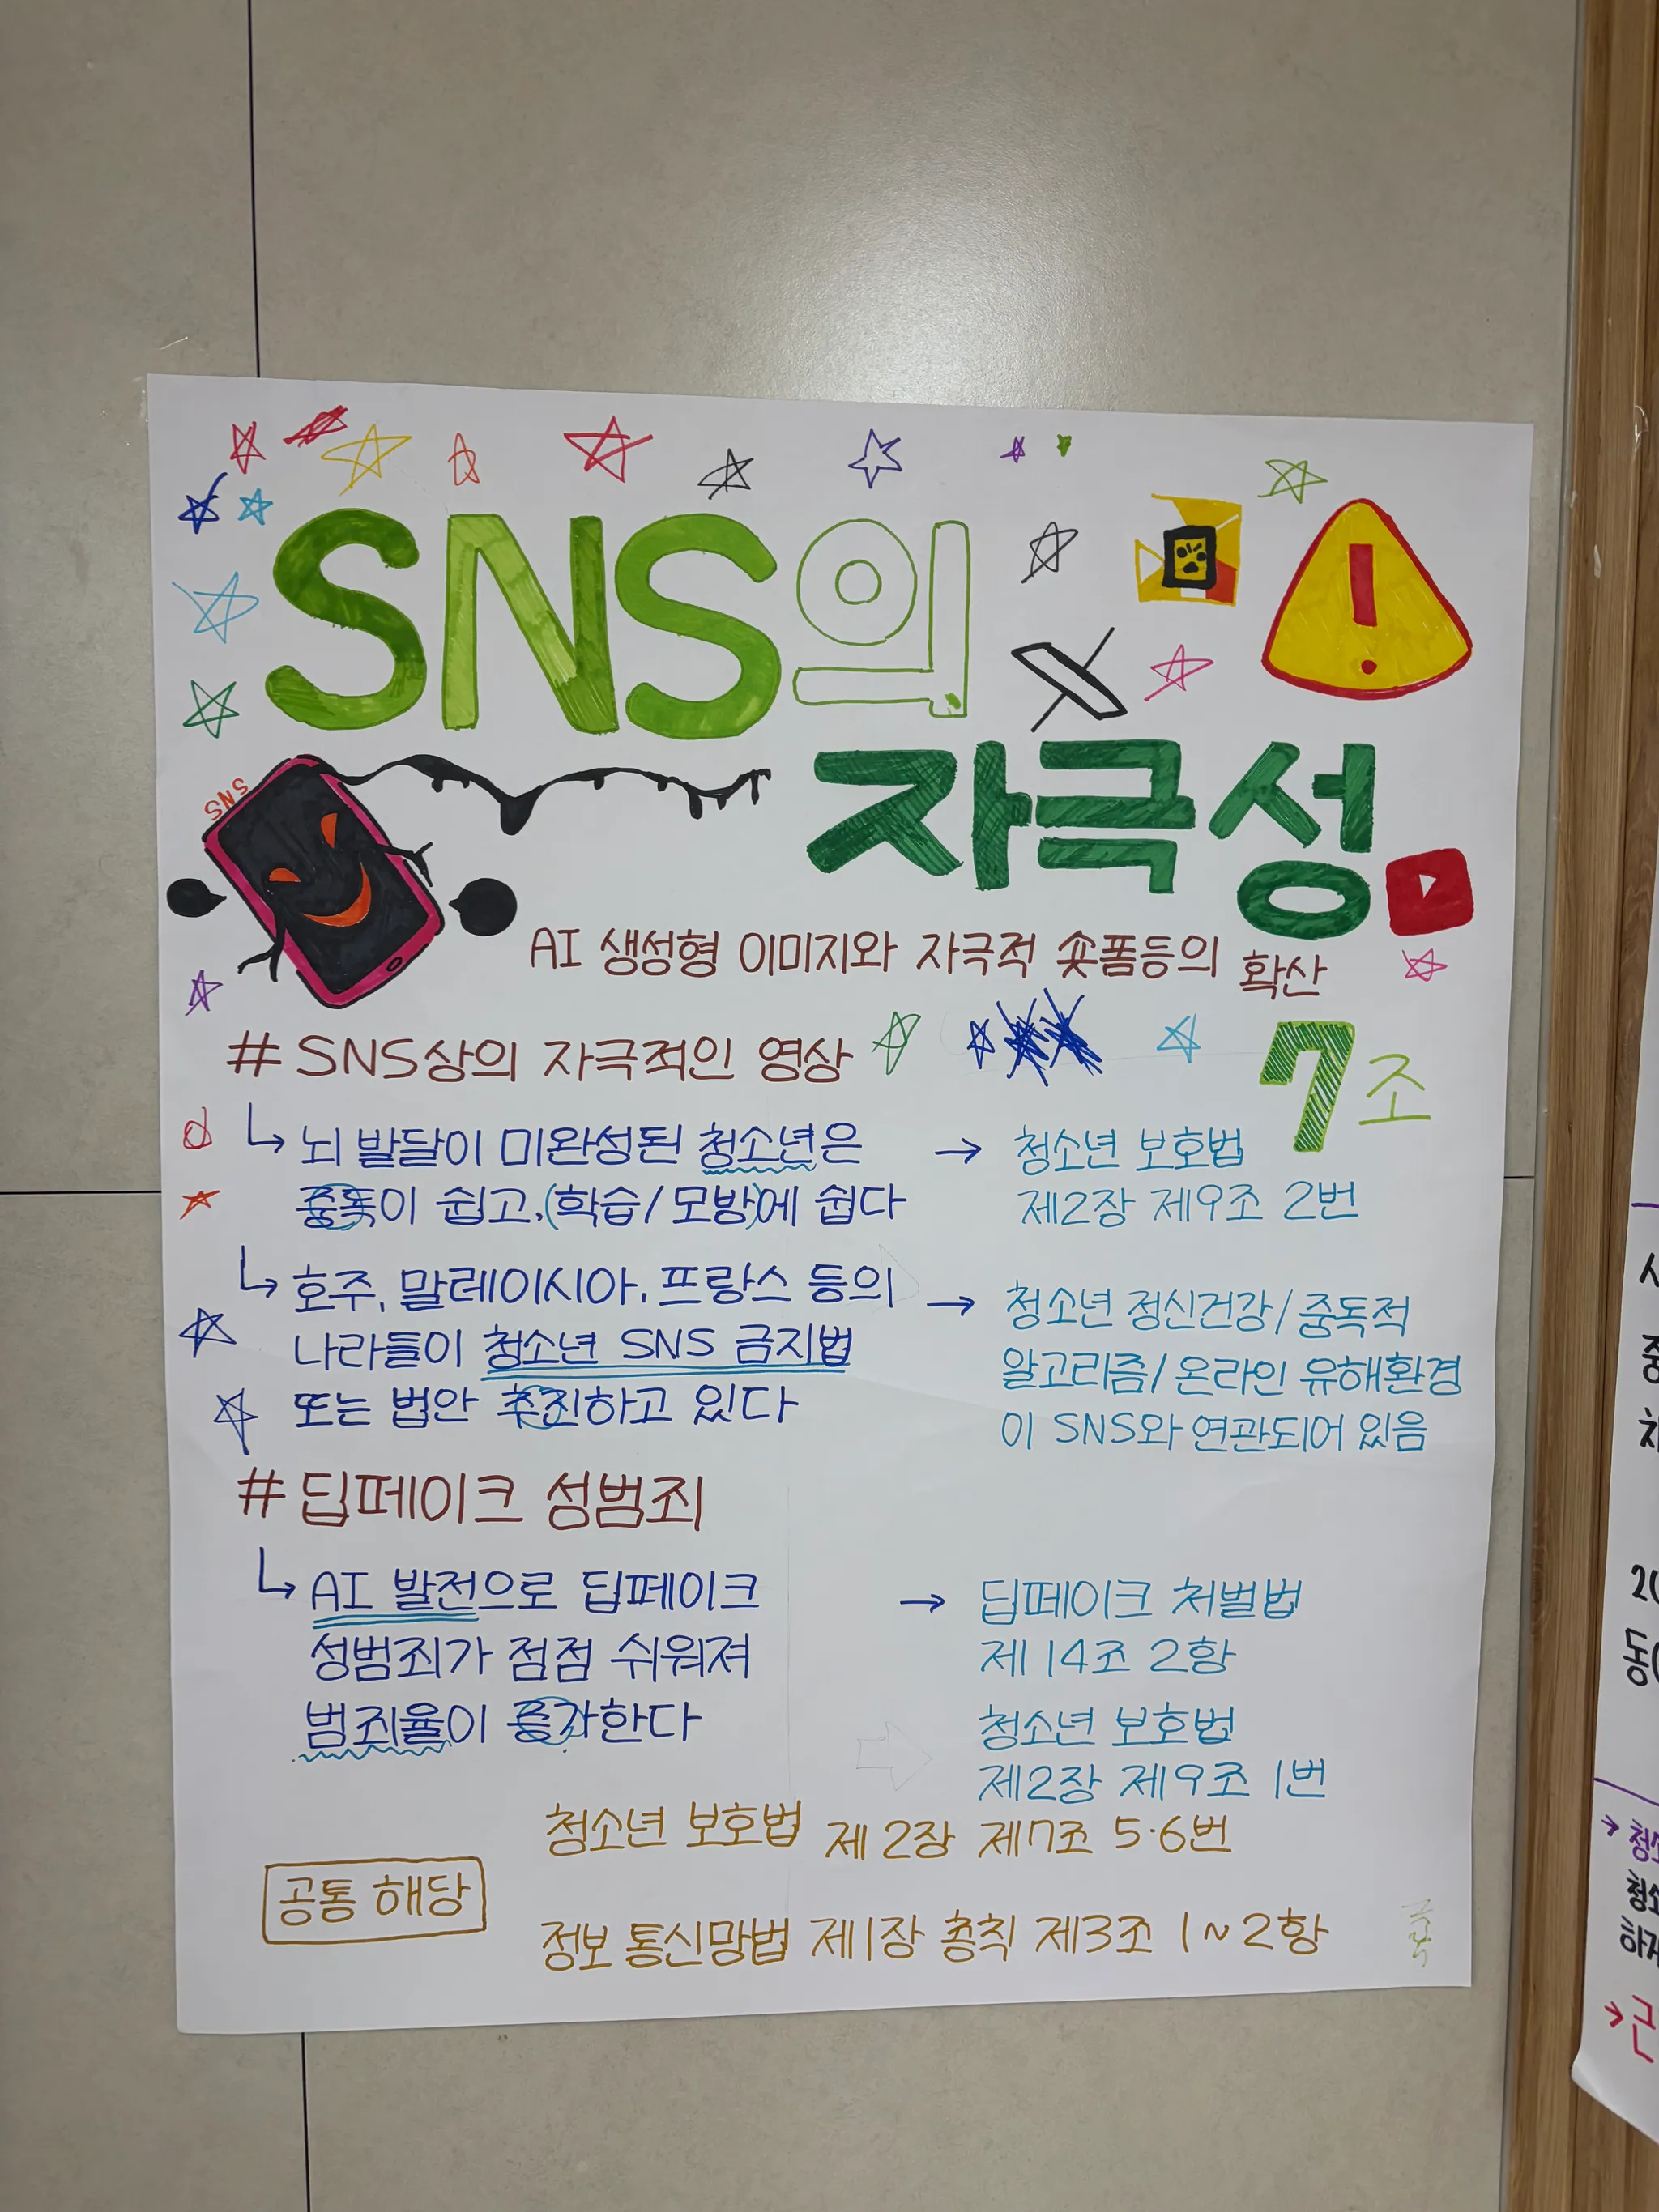 SNS의
자극성
SNS
AI 생성형 이미지와 자극적 숏폼등의 확산
7조
# SNS상의 자극적인 영상
뇌 발달이 미완성된 청소년은
중독이 쉽고, (학습/모방)에 쉽다
→ 청소년 보호법
제2장 제9조 2번
호주, 말레이시아, 프랑스 등의
나라들이 청소년 SNS 금지법
또는 법안 추진하고 있다
→ 청소년 정신건강/중독적
알고리즘/온라인 유해환경
이 SNS와 연관되어 있음
# 딥페이크 성범죄
AI 발전으로 딥페이크
성범죄가 점점 쉬워져
범죄율이 증가한다
→ 딥페이크 처벌법
제14조 2항
청소년 보호법
제2장 제9조 1번
공통 해당
청소년 보호법 제2장 제7조 5·6번
정보통신망법 제1장 총칙 제3조 1~2항